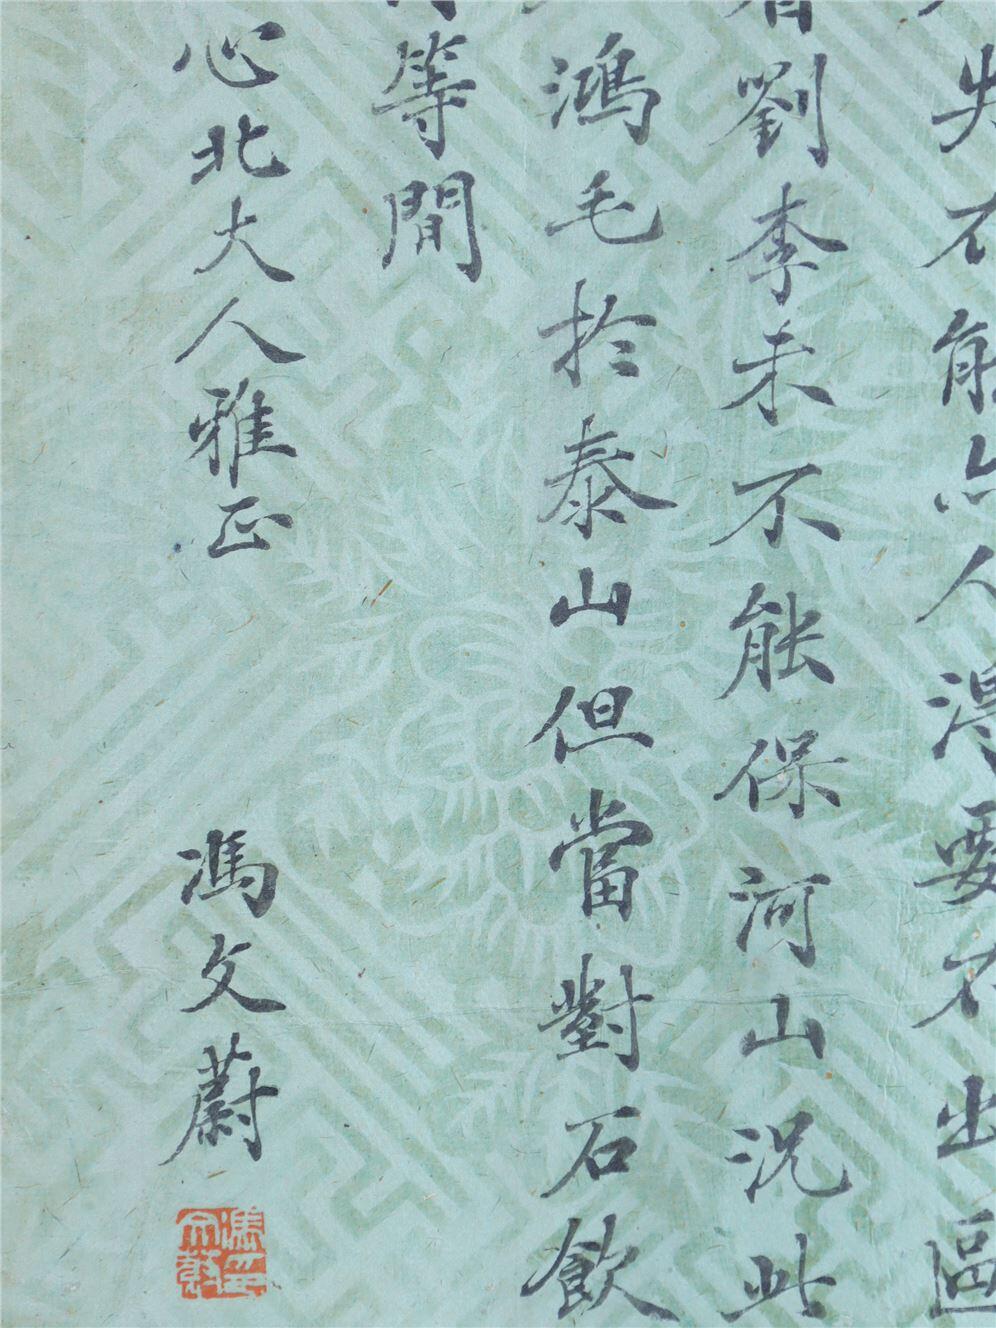 失不能無人得要不出區
劉李未不能保河山況此
鴻毛於泰山但當對石飲
等閒
心北大人雅正
馮文蔚